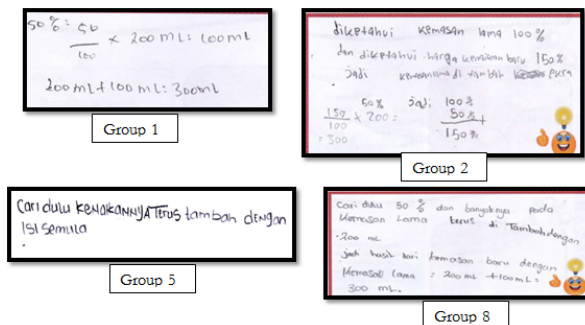 50%: 50/100 × 200 mL: 100ml
200 mL + 100 mL: 300ml
Group 1
diketahui kemasan lama 100%
dan diketahui harga kemasan baru 150%
jadi di tambah
50% jadi 100%
150/100 × 200 = 50% +
= 300 150%
Group 2
Cari dulu KENAIKANNYA TERUS tambah DENGAN
ISI SEMULA
Group 5
Cari dulu 50% dan banyaknya pada
Kemasan Lama terus di Tambah dengan
200 mL
jadi hasil dari kemasan baru dengan
Kemasan lama : 200 mL + 100 mL =
300 mL.
Group 8